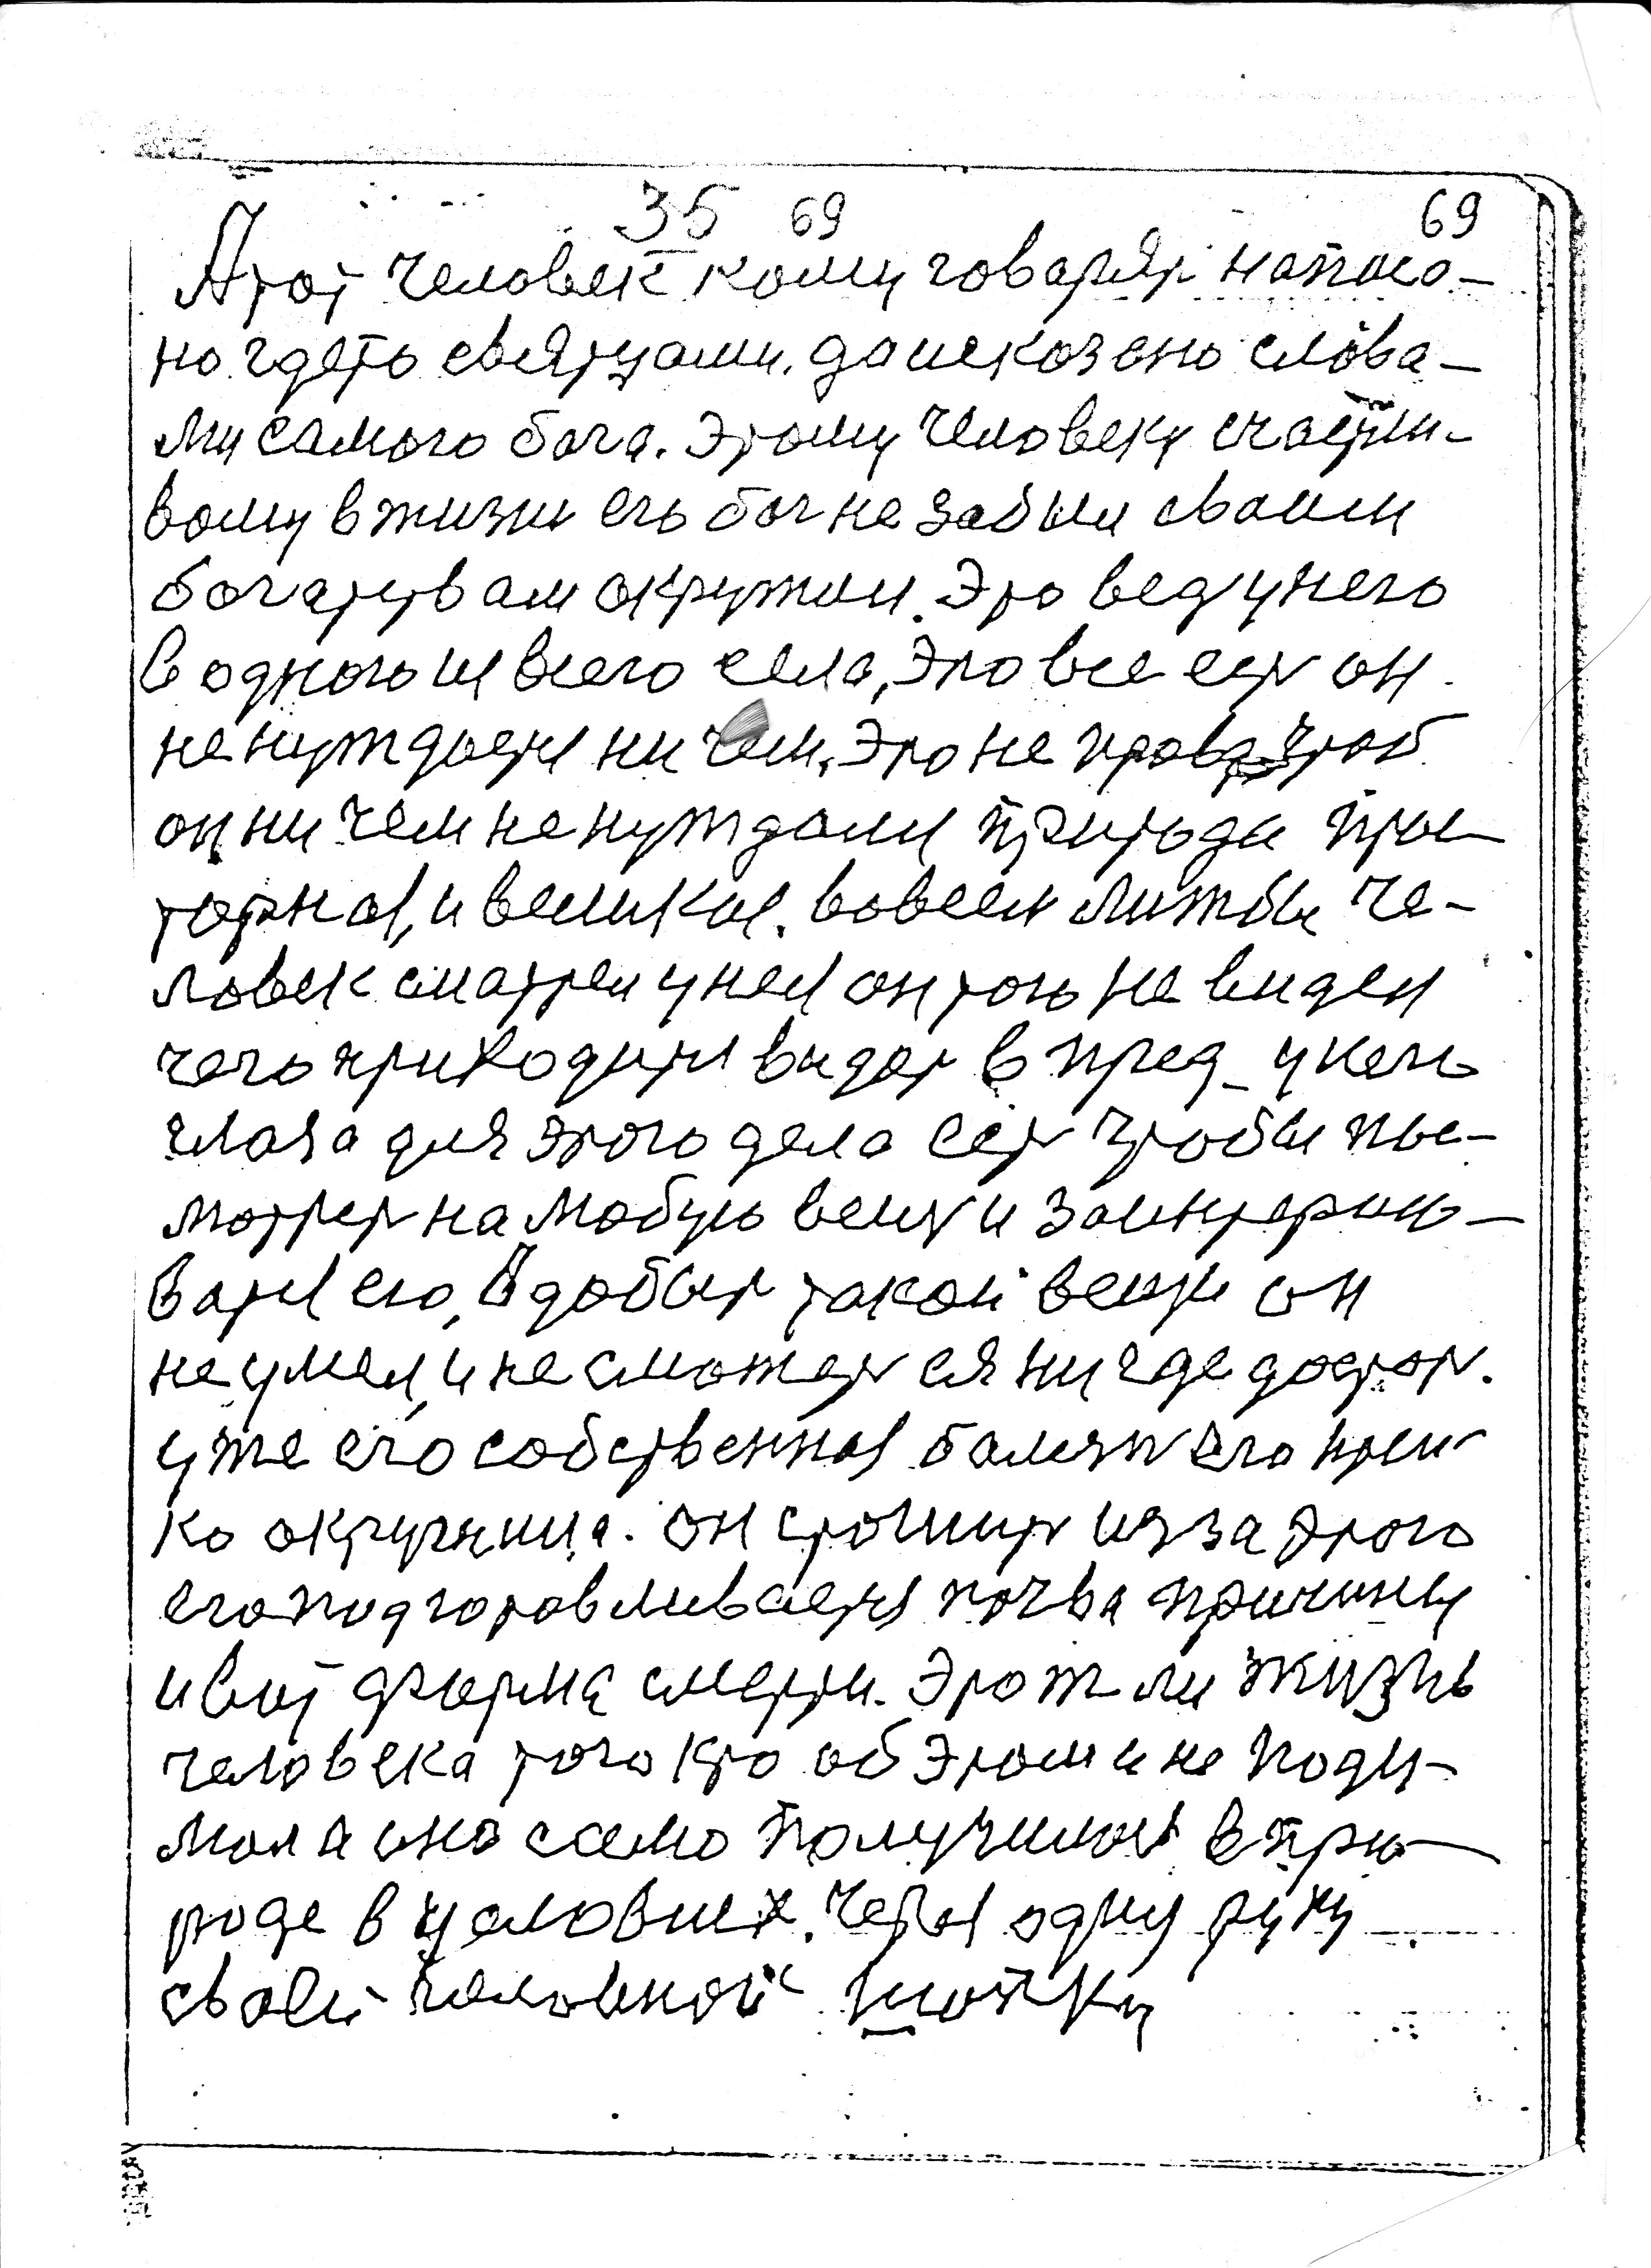 35 69 69
А тот человек кому говарят написа-
но гдето святцами, да и сказано слова-
ми самого бога. Этому человеку счастли-
вому в жизни его бог не забыл сваим
богатствам окружил. Это вед у него
в одного и всего села, Это все ест он
не нуждается ни чем, Это не правда чтоб
он ни чем не нуждался природа прос-
торная, и великая. вовсем лижбы че-
ловек сматрел у нея он того не видел
чего приходится видат в пред у него
глаза для этого дела ест чтобы пос-
мотрет на любую вещ и заинтересо-
ватся ею, А добыт такой вещи он
не умел, и не сможет ея ни где достат.
уже его собственная балезн его креп-
ко окружила. он стонит из за этого
его подготовливается почва причины
и вот форма смерти. Это ж ли жизнь
человека того кто об этом и не поду-
мал а оно само палучилос в при-
роде в условиях. Через одну руку
сваей человной шопку